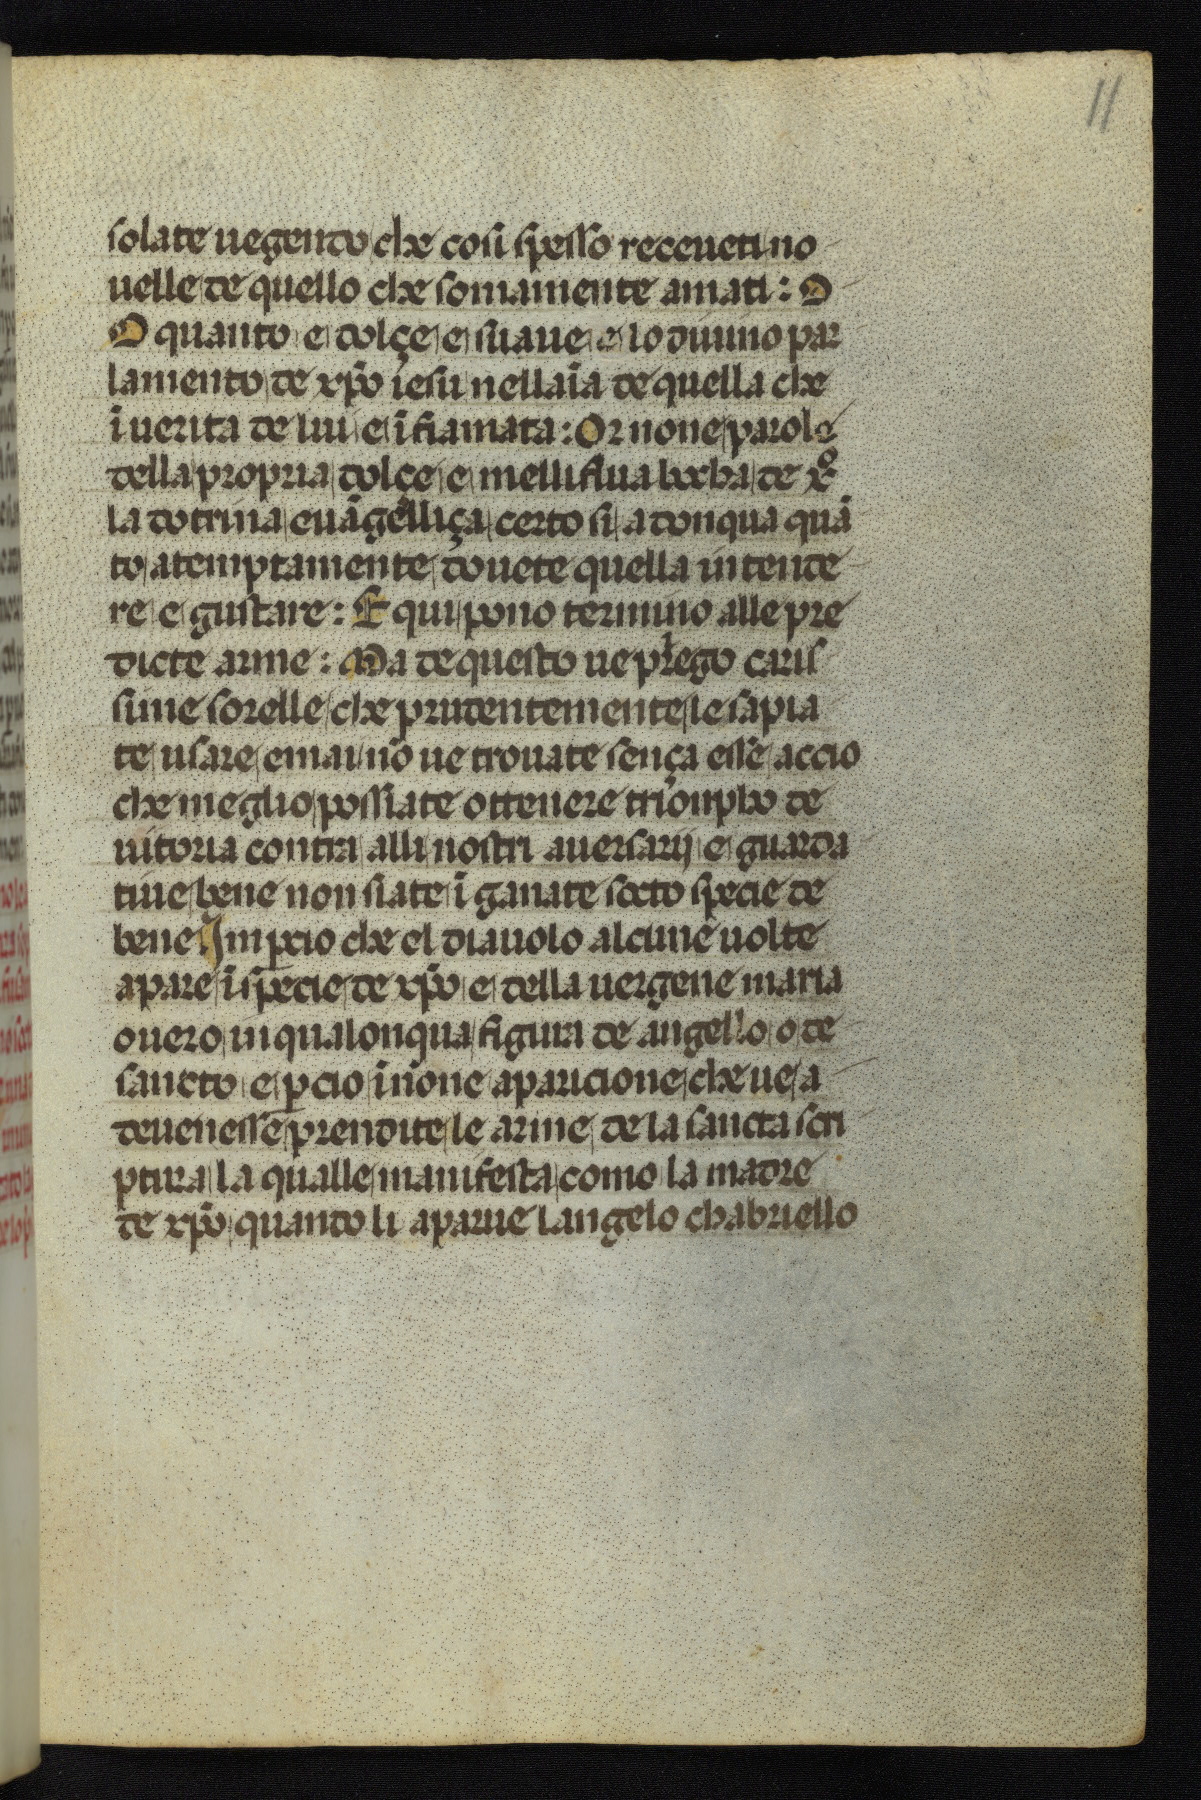 11
solate uegendo che cosi spesso receueti no
uelle de quello che somamente amati : O
O quanto e dolçe e suaue e lo diuino par
lamento de xp̄o iesu nellaīa de quella che
ī uerita de lui e ī fiamata : Or none parole
della propria dolçe e melliflua bocha de xº
la dotrina euāgelliça certo si adonqua quā
to atemptamente douete quella intende
re e gustare : E qui pono termino alle pre
dicte arme : Ma de questo ue priego caris
sime sorelle che prudentemente le sapia
te usare e mai nō ue trouate sença esse accio
che meglio possiate ottenere triompho de
uitoria contra alli nostri auersarij e guarda
tiue bene non siate īganate socto specie de
bene Imp̱cio che el diauolo alcune uolte
apare ī specie de xp̄o e della uergene maria
ouero in qualonqua figura de angello o de
sancto e p̱cio īn̄one aparicione che ue a
deuenesse prendite le arme de la sancta scri
ptura la qualle manifesta como la madre
de xp̄o quanto li aparue langelo chabriello